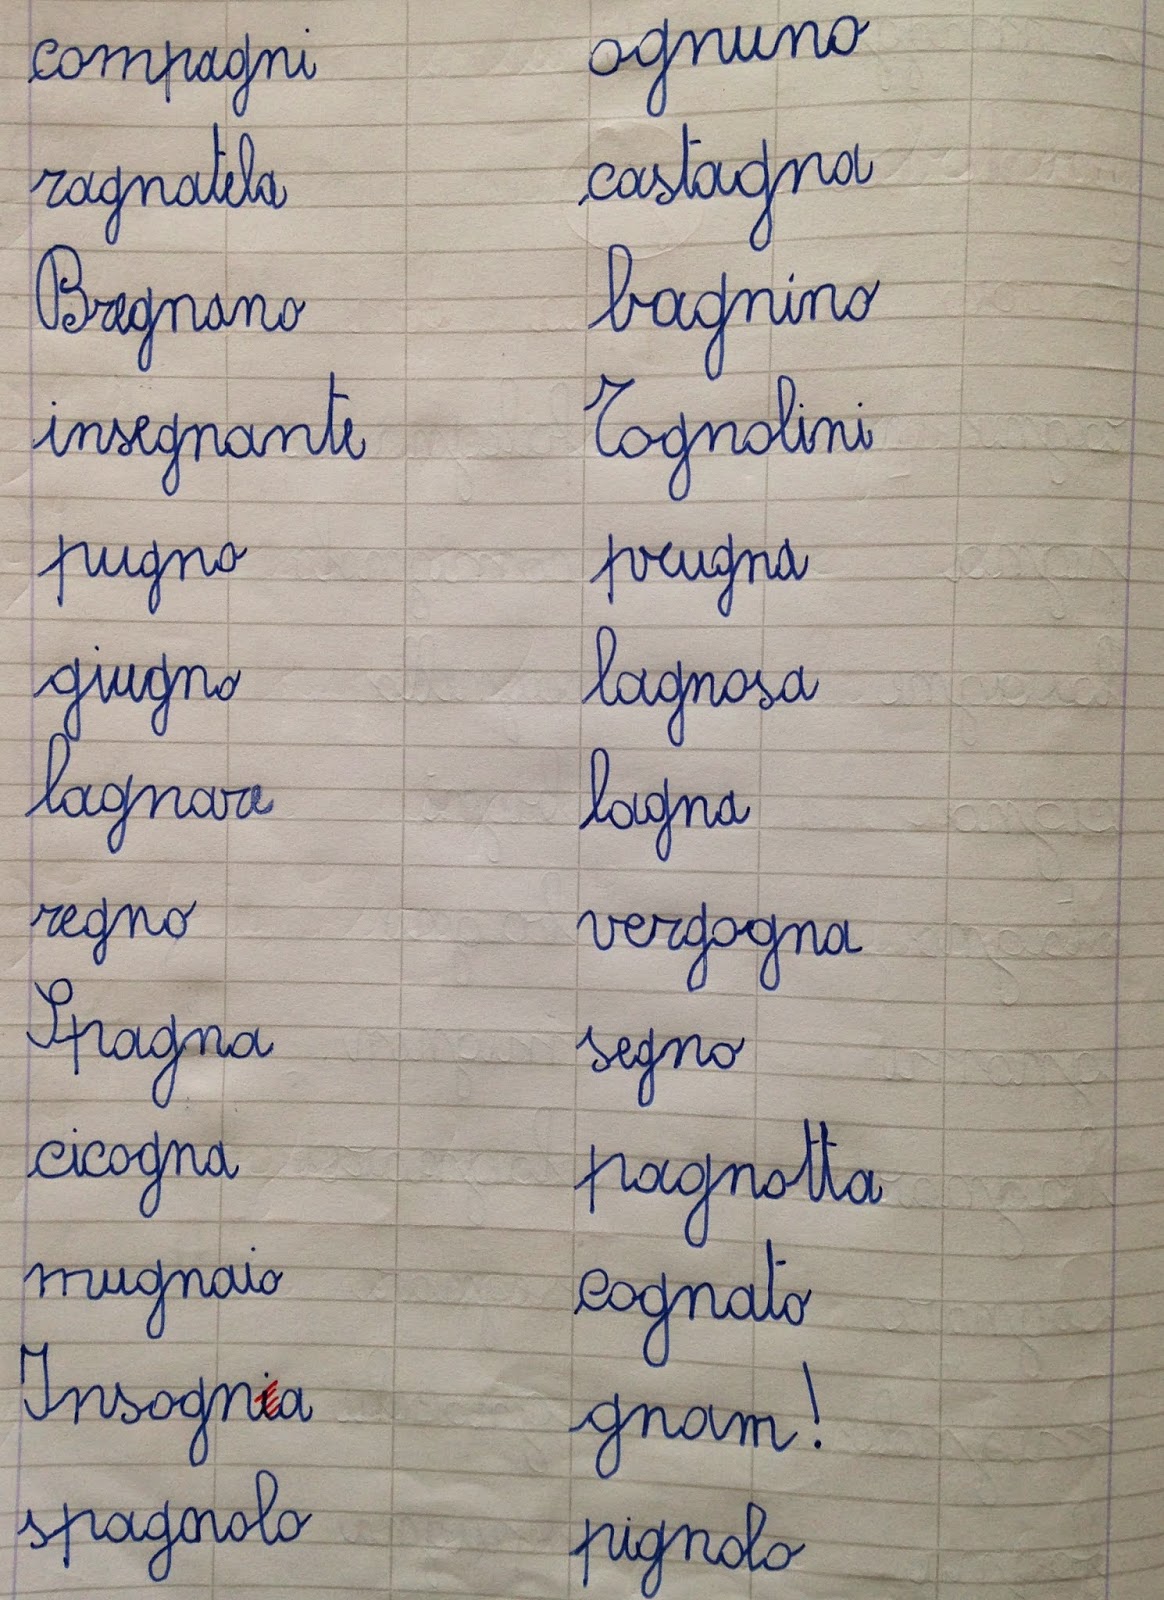 compagni
ragnatela
Bregnano
insegnante
pugno
giugno
lagnare
regno
Spagna
cicogna
mugnaio
Insognia
spagnolo
ognuno
castagna
bagnino
Tognolini
prugna
lagnosa
lagna
vergogna
segno
pagnotta
cognato
gnam!
pignolo